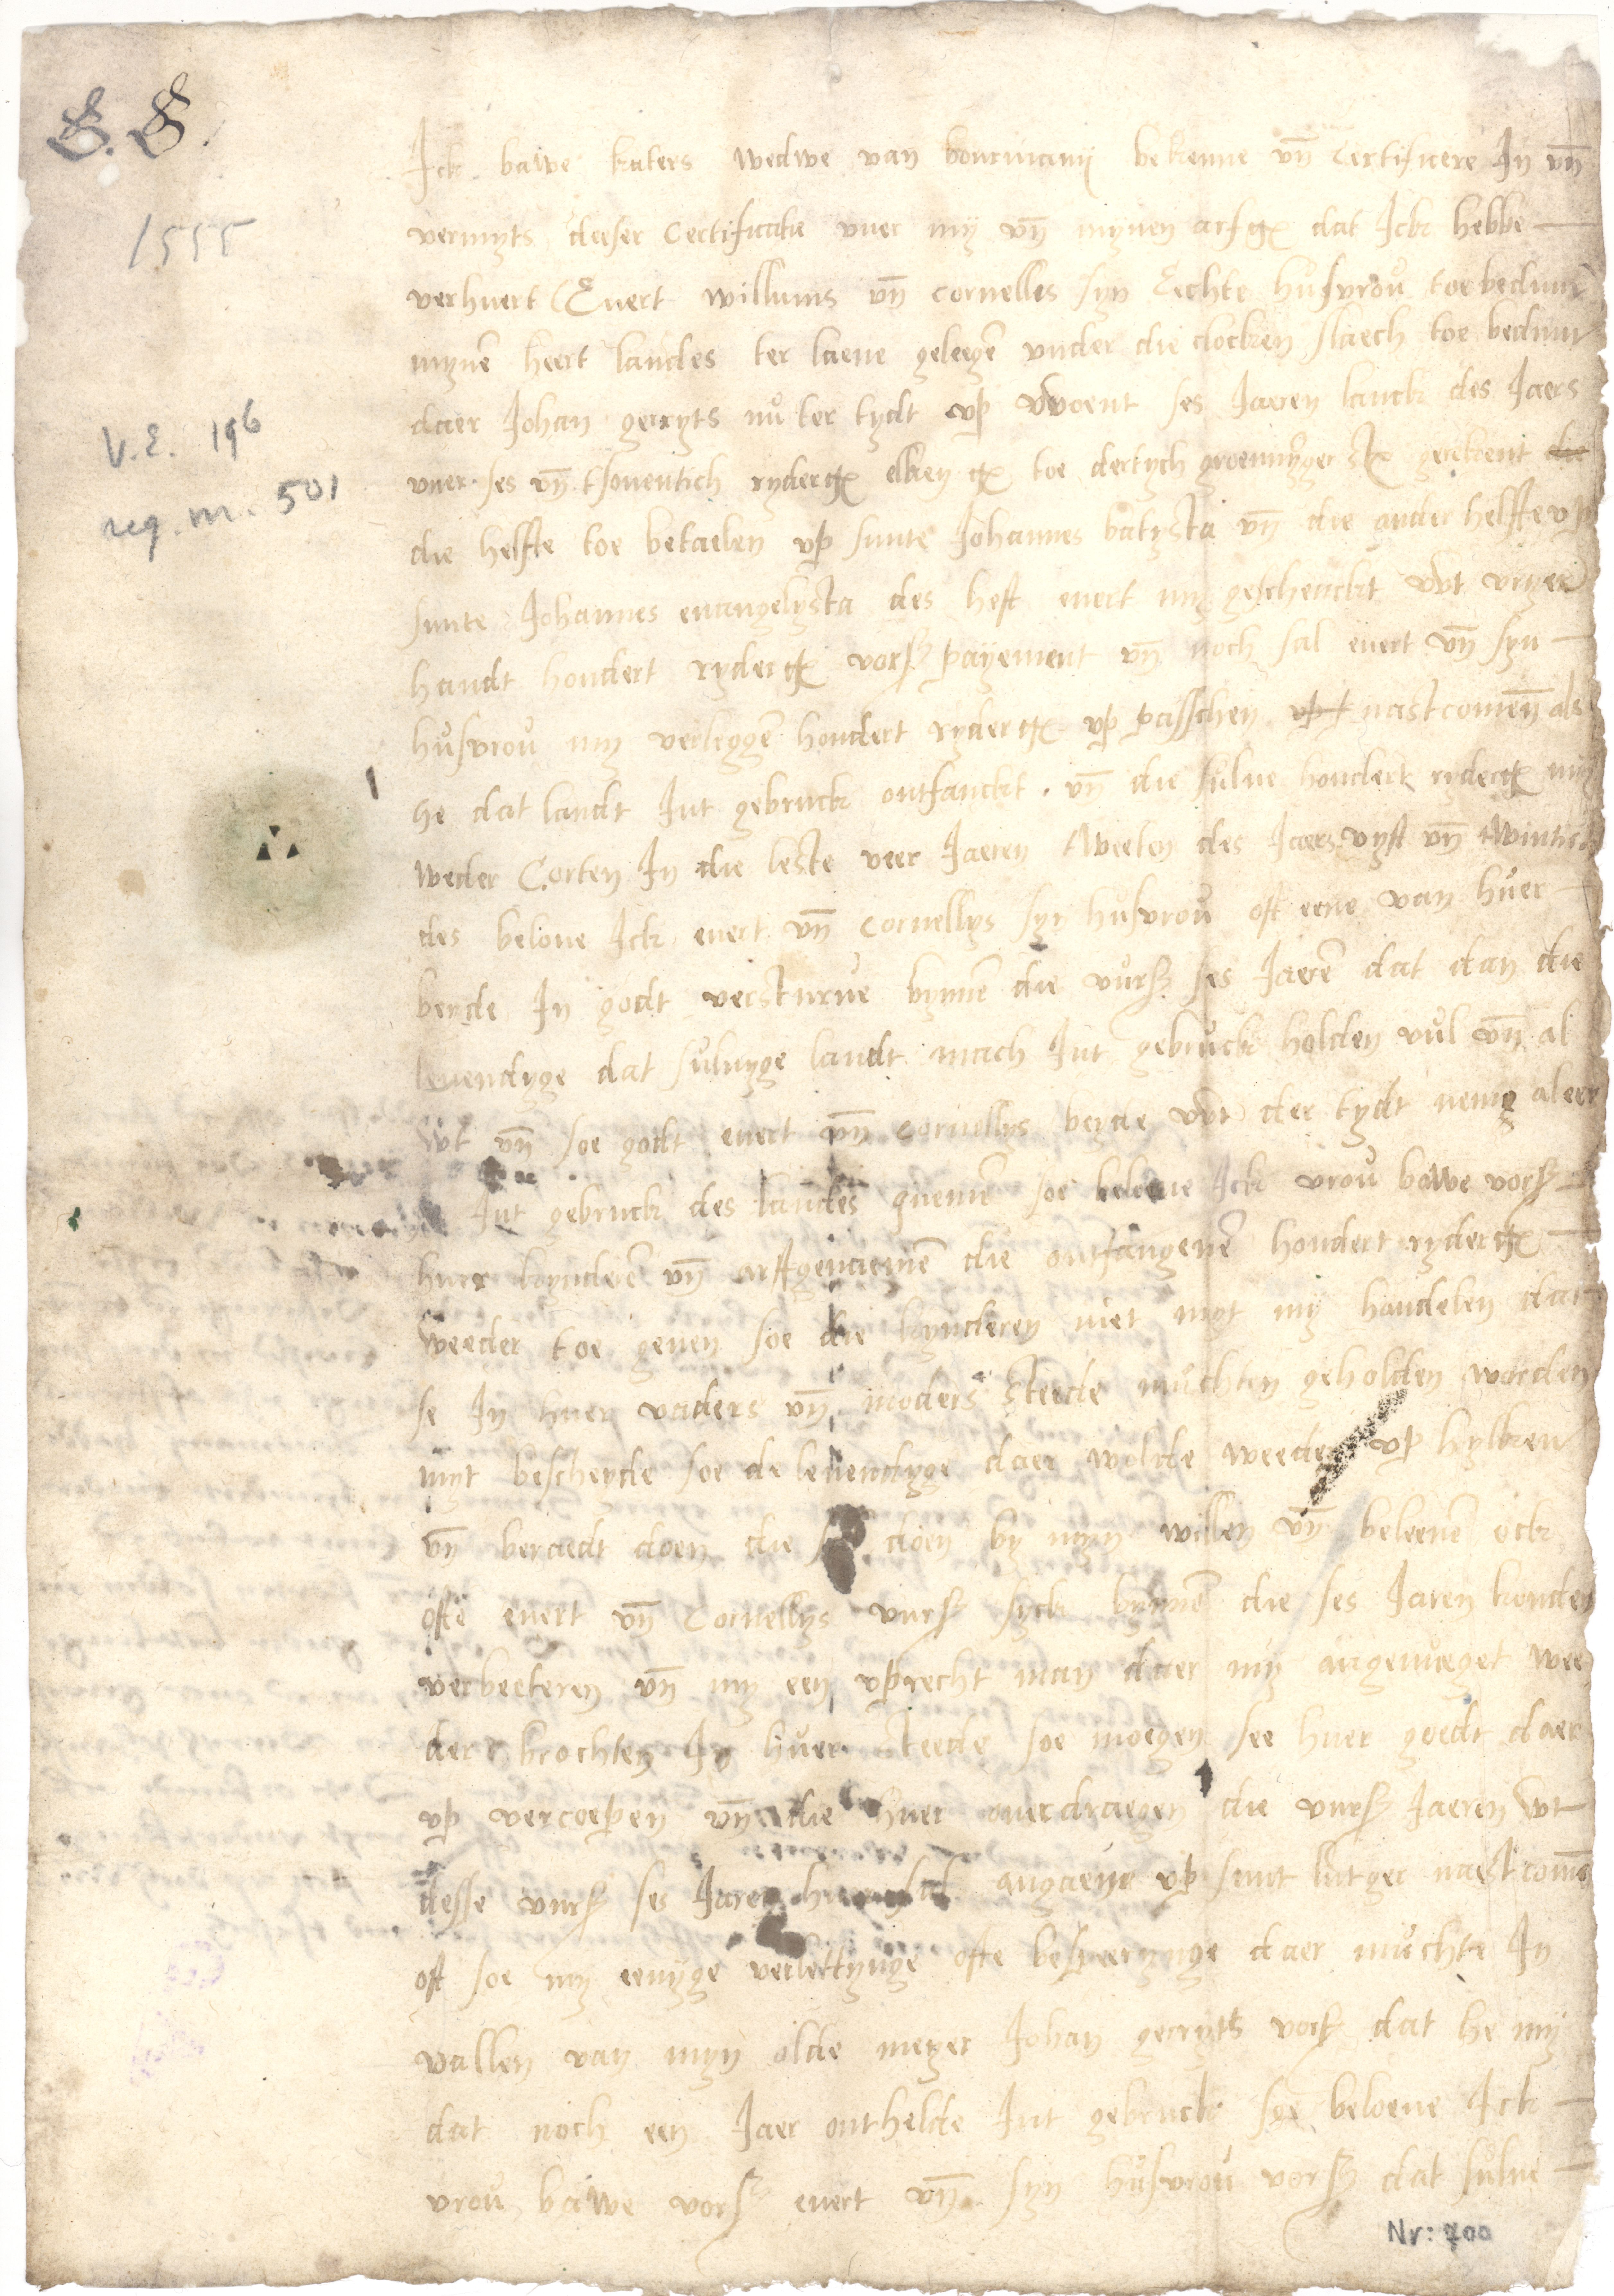 S. S.
1555
V.E. 196
reg. nr. 501
Ick bawe katers wedwe van bourmanij bekenne vn̄ Certificere In vn̄
vermyts deeser Certificatie vuer my vn̄ mynen arfg dat Ick hebbe
verhuert Euert willums vn̄ cornelles syn Eichte husvrou toe bedum
mynē heert landes ter laene gelegē vnder die clocken slaech toe bedum
daer Johan gerryts nu ter tydt vp woent ses Jaeren lanck des Jaers
vuer ses vn̄ tsouentich ryderg elken g toe dertych groeninyger st gerekent die
die helfte toe betaelen vp sunte Johannes batysta vn̄ die ander helfte vp
sunte Johannes euangelysta des heft euert my geschenckt wt vryer
handt hondert ryderg vors payement vn̄ noch sal euert vn̄ syn
husvrou my verleggē hondert ryderg vp passchen vpt nastcomen̄ als
he dat landt Int gebruck ontfanckt . vn̄ die sulue hondert ryderg my
weder Corten In die leste veer Jaeren tweeten des Jaers vyft vn̄ twintich
des beloue Ick euert vn̄ cornellys syn husvrou oft eene van huer
beyde In godt versturue bynnē die vurs ses Jaerē dat dan die
leuendyge dat suluyge landt mach Int gebruck holden vul vn̄ al
wt vn̄ soe godt euert vn̄ cornellys beyde wt der tydt neme aleer
Int gebruck des landes quemē soe beloeue Ick vrou bawe vors
huer kynderē vn̄ arftgenaemē die ontfangenē hondert ryderg
weeder toe geuen soe die kynderen niet myt my handelen dat
se In huer vaders vn̄ moders steede muchten geholden worden
myt bescheyde soe de leuendyge daer wolde weeder vp hylken
vn̄ beraedt doen die doen by myn willen vn̄ beleeuē ock
ofte euert vn̄ Cornellys vurs syck bynnē die ses Jaren konden
verbeeteren vn̄ my een vprecht man daer my angenueget wee
der brochten In huer steede soe moegen see huer goedt daer
vp vercoepen vn̄ die huer ouerdraegen die vurs Jaeren wt
desse vurs ses Jaren angaene vp sunt lutger naestcomē
oft soe my eenyge verlettynge ofte besweerynge daer muchte In
vallen van myn olde meyer Johan gerryts vors dat he my
dat noch een Jaer onthelde Int gebruck soe beloeue Ick
vrou bawe vors euert vn̄ syn husvrou vors dat sulue
Nr: 700